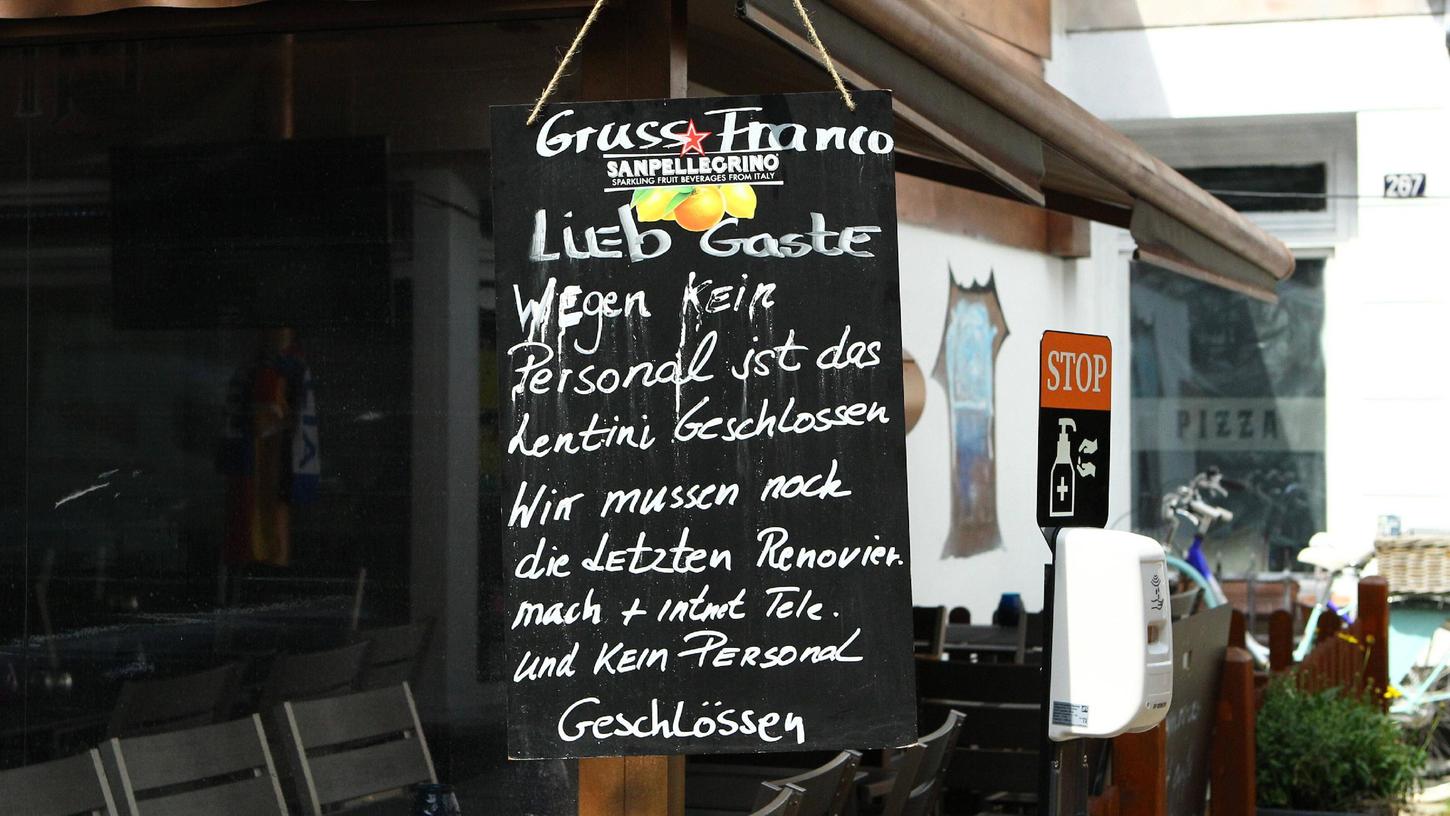 Gruss Franco
SANPELLEGRINO
SPARKLING FRUIT BEVERAGES FROM ITALY
Lieb Gaste
Wegen Kein
Personal ist das
Lentini Geschlossen
Wir mussen noch
die Letzten Renovier.
mach + intnet Tele.
und Kein Personal
Geschlössen
STOP
PIZZA
267